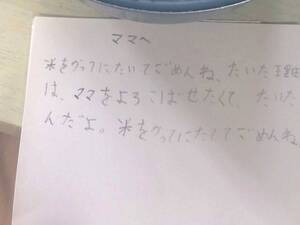 ママへ
米をかってにたいてごめんね、だいた理由
は、ママをよろこばせたくて、たいた
んだよ。米をかってにたてごめんね。